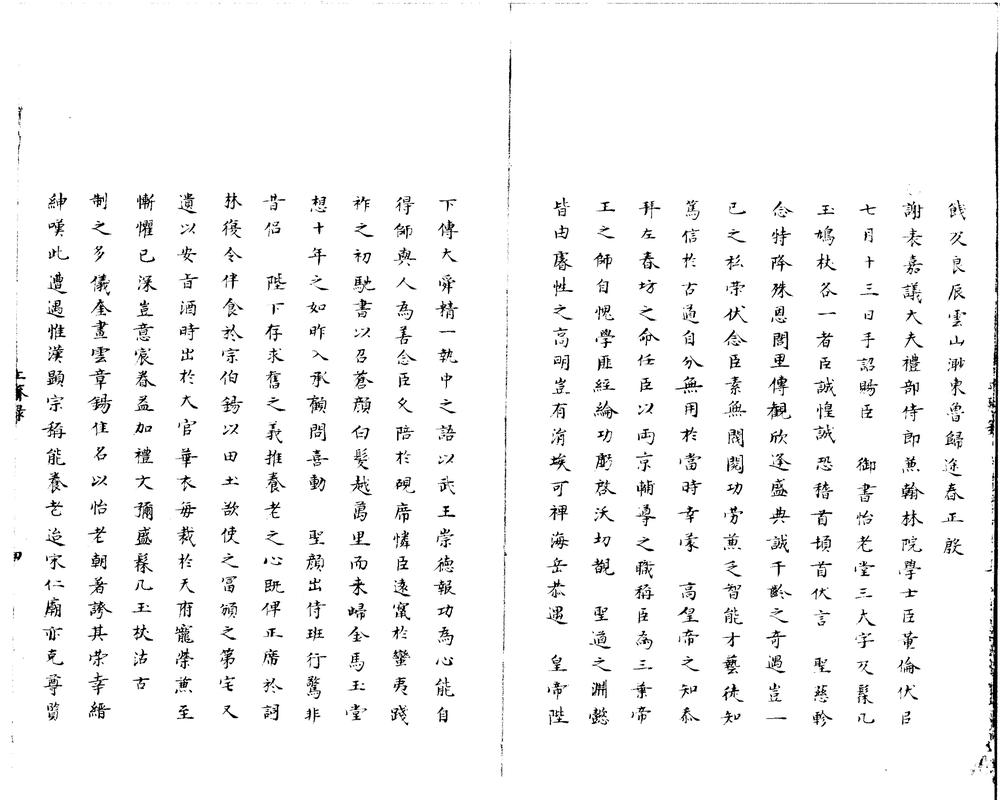 餞及良辰雲山渺東魯歸途春正殷
謝表嘉議大夫禮部侍郎兼翰林院學士臣董倫伏㠯
七月十三日手詔賜臣 御書怡老堂三大字及髹几
玉鳩杖各一者臣誠惶誠恐稽首頓首伏言 聖慈軫
念特降殊恩閭里傳觀欣逢盛典誠千齡之奇遇豈一
已之私榮伏念臣素無閥閱功勞兼乏智能才藝徒知
篤信於古道自分無用於當時幸蒙 高皇帝之知忝
拜左春坊之命任臣以両京輔導之職稱臣為三葉帝
王之師自愧學匪経綸功彫啓沃切覩 聖道之淵懿
皆由睿性之高明豈有涓埃可裨海岳恭遇 皇帝陛
下傳大舜精一執中之語以武王崇德報功為心能自
得師與人為善念臣久陪於硯席憐臣遠竄於蠻夷踐
祚之初馳書以召蒼顔白髮越萬里而来歸金馬玉堂
想十年之如昨入承顧問喜動 聖顔出侍班行驚非
昔侣 陛下存求舊之義推養老之心既俾正席於詞
林復令伴食於宗伯錫以田土欲使之富頒之第宅又
遺以安旨酒時出於大官華衣每裁於天府寵榮兼至
慚懼已深豈意宸眷益加禮文彌盛髹几玉杖沽古
制之多儀奎畫雲章錫佳名以怡老朝著誇其榮幸縉
紳嘆此遭遇惟漢顯宗稱能養老迨宋仁廟亦克尊賢